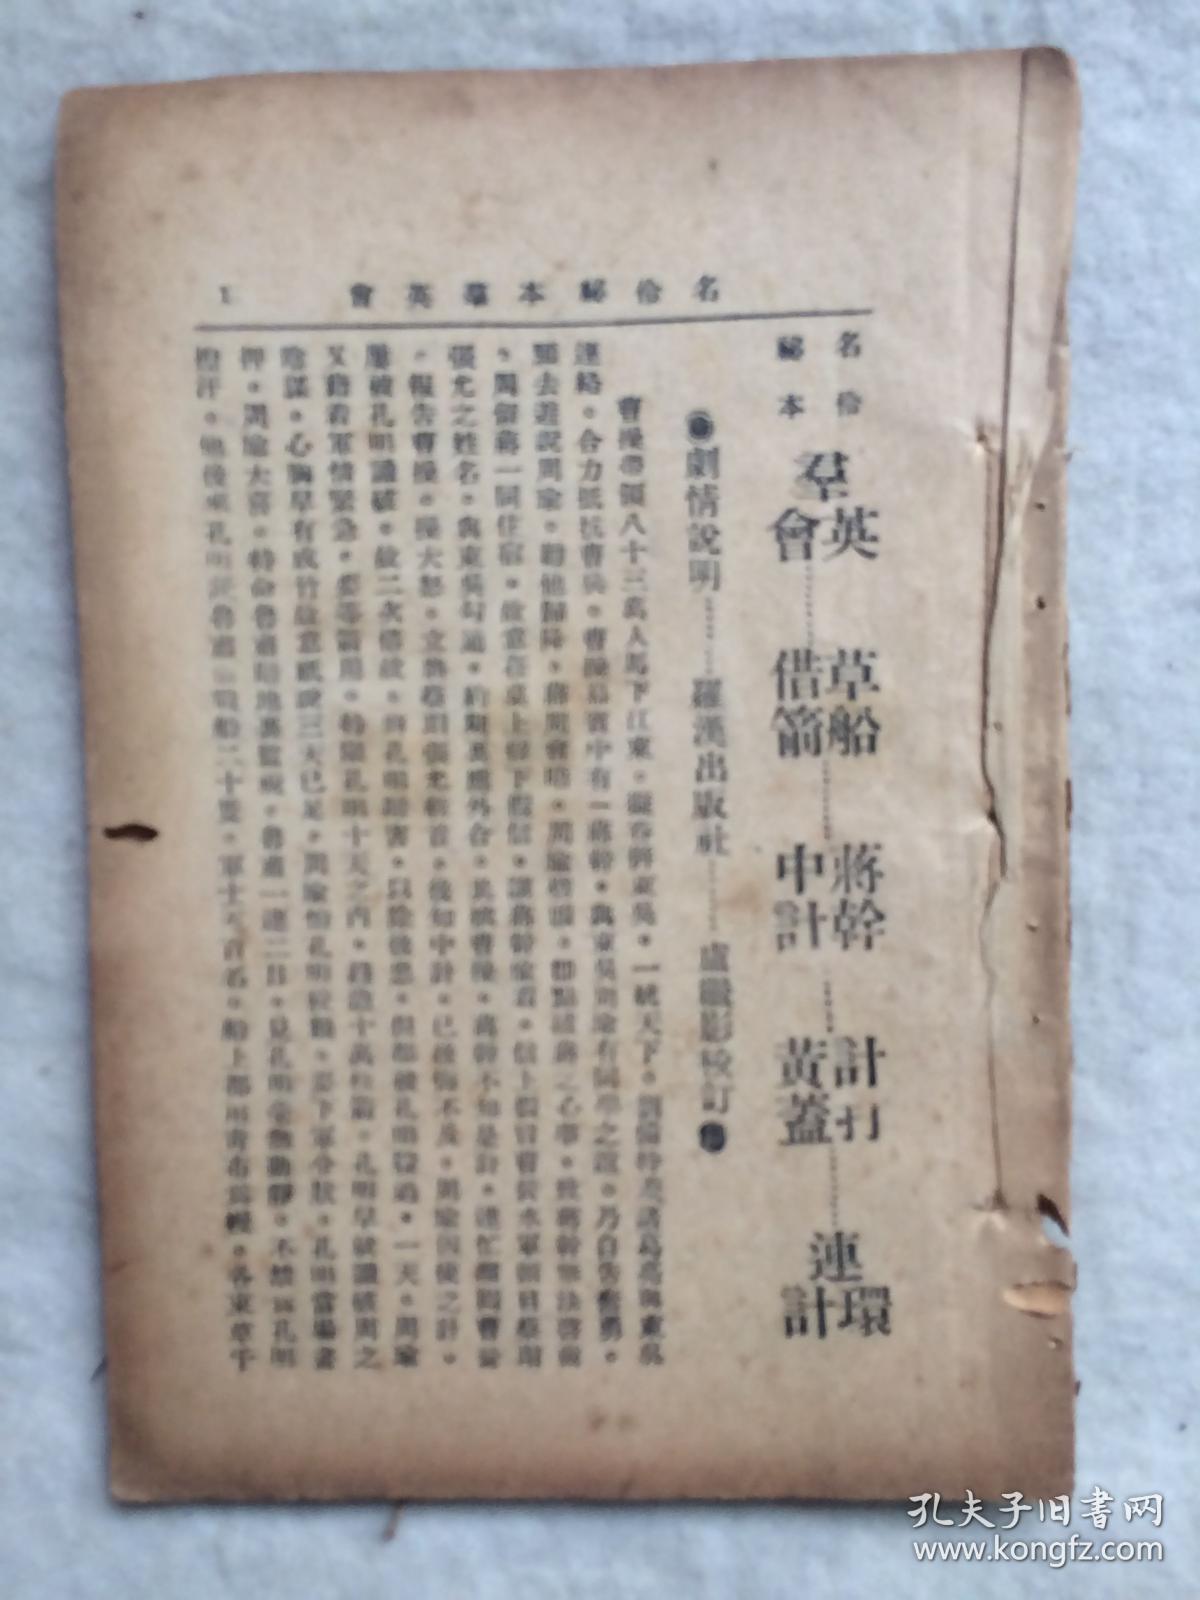 名伶秘本羣英會 1
名伶
秘本
羣英會……草船借箭……蔣幹中計……計打黃蓋……連環計
劇情說明……羅漢出版社……盧繼影校訂
曹操帶領八十三萬人馬下江東，一統天下。劉備特差諸葛亮與東吳
連絡，合力抵抗曹兵。曹操幕賓中有一蔣幹，與東吳周瑜有同學之誼，乃自告奮勇。
願去遊說周瑜，勸他歸降，蔣周會晤，即點破蔣之心事，致蔣幹無法啓齒
，周留蔣一同住宿，故意在桌上留下假信，讓蔣幹偷看，信上假冒曹營水軍頭目蔡瑁
張允之姓名，與東吳勾通，約期裏應外合，蔣幹不知是計，連忙離周曹營
，報告曹操，操大怒，立將蔡瑁張允斬首，後知中計，已後悔不及，周瑜因使之計，
屢被孔明識破，故二次借故，將孔明謀害，以除後患，但都被孔明躲過。一天，周瑜
又藉着軍情緊急，要等箭用，特限孔明十天之內，趕造十萬枝箭，孔明早被識破周之
陰謀，心胸早有成竹故意祇說三天已足，周瑜怕孔明狡賴，要下軍令狀，孔明當場書
押，周瑜大喜，特命魯肅暗地裏監視，魯肅一連二日，見孔明毫無動靜，不禁爲孔明
担汗，他後來孔明說魯肅，戰船二十隻，軍士五百名，船上都用青布爲幔，各束草千
孔夫子旧书网
www.kongfz.com